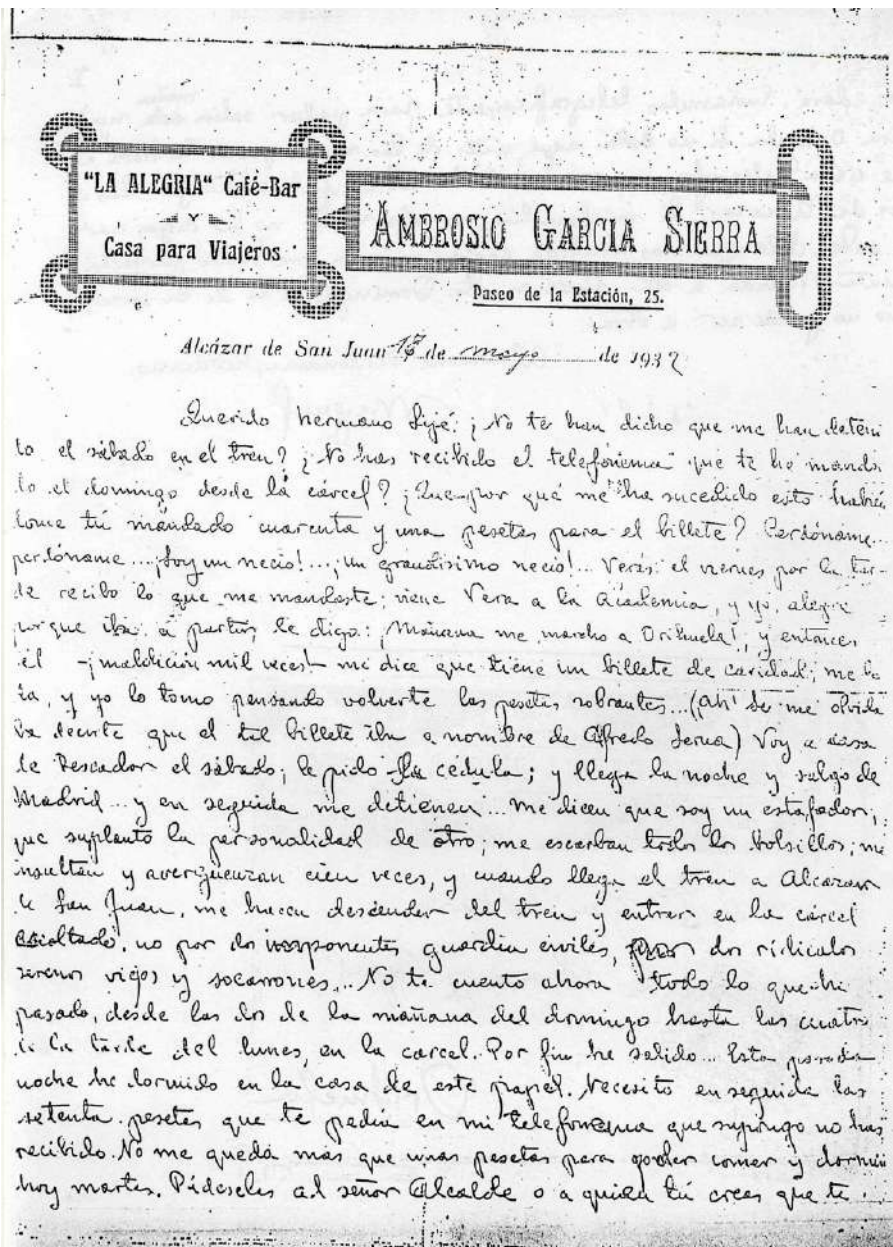 "LA ALEGRIA" Café-Bar
Y
Casa para Viajeros
AMBROSIO GARCIA SIERRA
Paseo de la Estación, 25.
Alcázar de San Juan 17 de mayo de 1932
Querido hermano Sijé: ¿No te han dicho que me han deteni
do el sábado en el tren? ¿No has recibido el telefonema que te he manda
do el domingo desde la cárcel? ¿Que por qué me ha sucedido esto habién
dome tú mandado cuarenta y una pesetas para el billete? Perdóname...
perdóname... ¡Soy un necio!... ¡un grandísimo necio!... Verás: el viernes por la tar-
de recibo lo que me mandaste; viene Vera a la Academia, y yo, alegre
porque iba a partir, le digo: ¡Mañana me marcho a Orihuela!, y entonces
él -¡maldición mil veces!- me dice que tiene un billete de caridad; me lo
da, y yo lo tomo pensando volverte las pesetas sobrantes... (¡Ah! Se me olvida
ba decirte que el tal billete iba a nombre de Alfredo Serna) Voy a casa
de Pescador el sábado; le pido la cédula; y llega la noche y salgo de
Madrid... y en seguida me detienen... Me dicen que soy un estafador,
que suplanto la personalidad de otro; me escarban todos los bolsillos; me
insultan y avergüenzan cien veces, y cuando llega el tren a Alcázar
de San Juan, me hacen descender del tren y entrar en la cárcel
escoltado, no por dos imponentes guardia civiles, por dos ridículos
serenos viejos y socarrones... No te cuento ahora todo lo que he
pasado, desde las dos de la mañana del domingo hasta las cuatro
de la tarde del lunes, en la carcel. Por fin he salido... Esta pasada
noche he dormido en la casa de este papel. Necesito en seguida las
setenta pesetas que te pedía en mi telefonema que supongo no has
recibido. No me queda más que unas pesetas para poder comer y dormir
hoy martes. Pídeselas al señor Alcalde o a quien tú creas que te